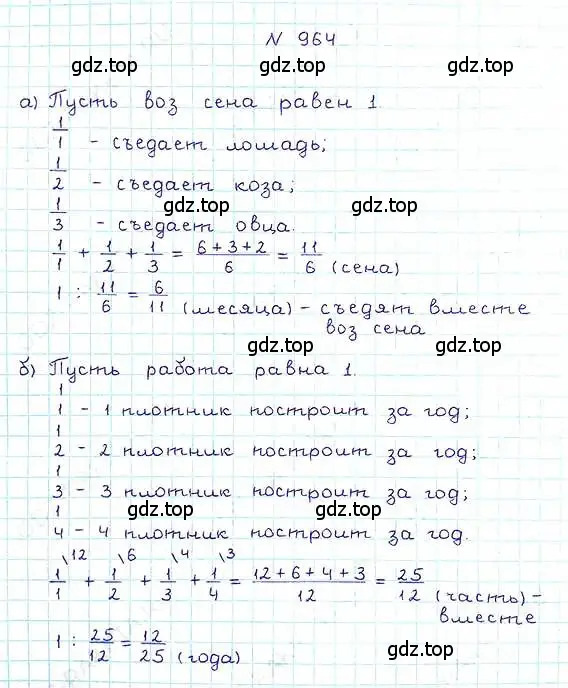 N 964
gdz.top gdz.top
а) Пусть воз сена равен 1.
1/1 - съедает лошадь;
1/2 - съедает коза;
gdz.top gdz.top
1/3 - съедает овца.
1/1 + 1/2 + 1/3 = (6+3+2)/6 = 11/6 (сена)
1 : 11/6 = 6/11 (месяца) - съедят вместе
воз сена
gdz.top gdz.top
б) Пусть работа равна 1.
1
1 - 1 плотник построит за год;
1
2 - 2 плотник построит за год;
1
3 - 3 плотник построит за год;
gdz.top gdz.top
1
4 - 4 плотник построит за год.
\12 \6 \4 \3
1/1 + 1/2 + 1/3 + 1/4 = (12+6+4+3)/12 = 25/12 (часть) -
вместе
1 : 25/12 = 12/25 (года)
gdz.top gdz.top